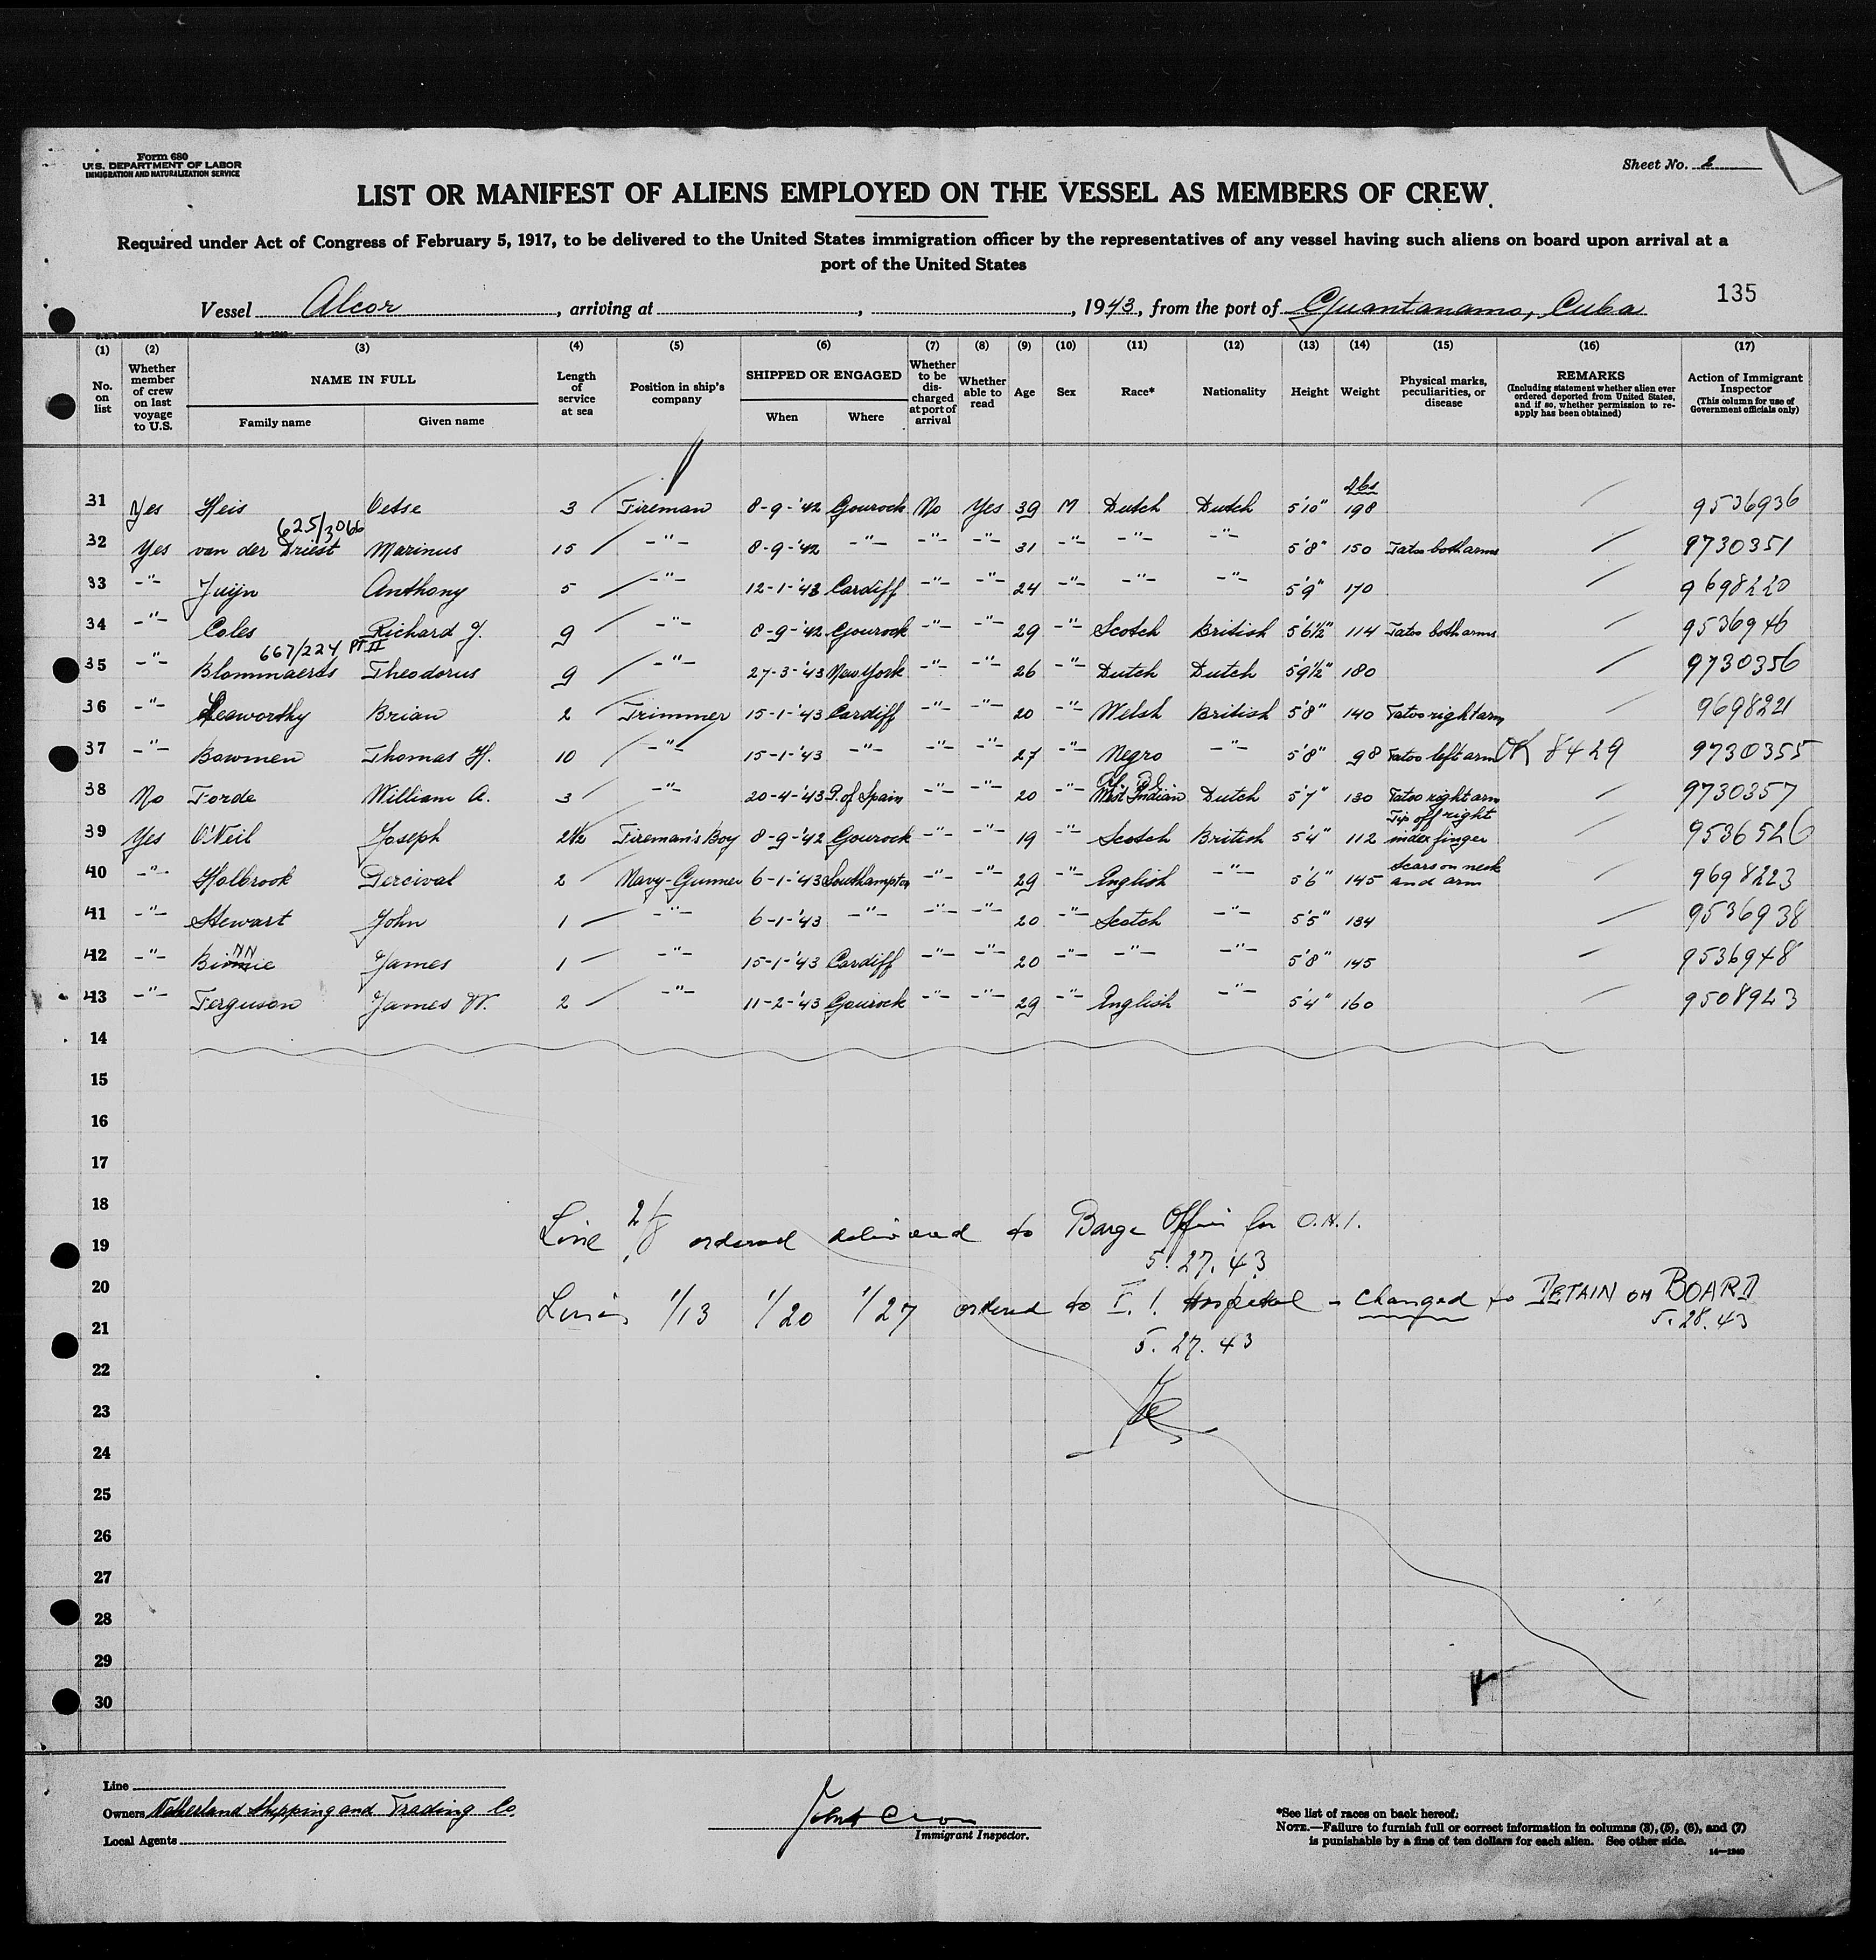 Form 680
U.S. DEPARTMENT OF LABOR
IMMIGRATION AND NATURALIZATION SERVICE
Sheet No. 2
LIST OR MANIFEST OF ALIENS EMPLOYED ON THE VESSEL AS MEMBERS OF CREW
Required under Act of Congress of February 5, 1917, to be delivered to the United States immigration officer by the representatives of any vessel having such aliens on board upon arrival at a
port of the United States
135
Vessel Alcor, arriving at , , 1943, from the port of Guantanamo, Cuba
(1) (2) (3) (4) (5) (6) (7) (8) (9) (10) (11) (12) (13) (14) (15) (16) (17)
No. on list
Whether member of crew on last voyage to U.S.
NAME IN FULL
Family name Given name
Length of service at sea
Position in ship's company
SHIPPED OR ENGAGED
When Where
Whether to be discharged at port of arrival
Whether able to read
Age
Sex
Race*
Nationality
Height
Weight
Physical marks, peculiarities, or disease
REMARKS
(Including statement whether alien ever ordered deported from United States, and if so, whether permission to reapply has been obtained)
Action of Immigrant Inspector
(This column for use of Government officials only)
lbs
31 Yes Heis Oetse 3 Fireman 8-9-'42 Gourock No Yes 39 M Dutch Dutch 5'10" 198 9536936
625/3066
32 Yes van der Driest Marinus 15 -"- 8-9-'42 -"- -"- -"- 31 -"- -"- -"- 5'8" 150 Tatoo both arms 9730351
33 -"- Juijn Anthony 5 -"- 12-1-'43 Cardiff -"- -"- 24 -"- -"- -"- 5'9" 170 9698220
34 -"- Coles Richard J. 9 -"- 8-9-'42 Gourock -"- -"- 29 -"- Scotch British 5'6½" 114 Tatoo both arms 9536946
667/224 PT II
35 -"- Blommaerts Theodorus 9 -"- 27-3-'43 New York -"- -"- 26 -"- Dutch Dutch 5'9½" 180 9730356
36 -"- Lesworthy Brian 2 Trimmer 15-1-'43 Cardiff -"- -"- 20 -"- Welsh British 5'8" 140 Tatoo right arm 9698221
37 -"- Bowmen Thomas H. 10 -"- 15-1-'43 -"- -"- -"- 27 -"- Negro -"- 5'8" 98 Tatoo left arm OK 8429 9730355
38 No Forde William A. 3 -"- 20-4-'43 P. of Spain -"- -"- 20 -"- West Indian Dutch 5'7" 130 Tatoo right arm 9730357
39 Yes O'Neil Joseph 2½ Fireman's Boy 8-9-'42 Gourock -"- -"- 19 -"- Scotch British 5'4" 112 Tip off right index finger 9536526
40 -"- Holbrook Percival 2 Navy-Gunner 6-1-'43 Southampton -"- -"- 29 -"- English -"- 5'6" 145 Scars on neck and arm 9698223
41 -"- Stewart John 1 -"- 6-1-'43 -"- -"- -"- 20 -"- Scotch -"- 5'5" 134 9536938
NN
42 -"- Binnie James 1 -"- 15-1-'43 Cardiff -"- -"- 20 -"- -"- -"- 5'8" 145 9536948
43 -"- Ferguson James W. 2 -"- 11-2-'43 Gourock -"- -"- 29 -"- English -"- 5'4" 160 9508923
14
15
16
17
18
Line 2/8 ordered delivered to Barge Office for O.N.I.
19
5.27.43
20
Lines 1/13 1/20 1/27 ordered to E.I. Hospital - changed to DETAIN ON BOARD
5.28.43
21
5.27.43
22
23
24
25
26
27
28
29
30
Line
Owners Netherland Shipping and Trading Co.
Local Agents
Immigrant Inspector.
*See list of races on back hereof.
NOTE.—Failure to furnish full or correct information in columns (3), (5), (6), and (7)
is punishable by a fine of ten dollars for each alien. See other side.
14—1240